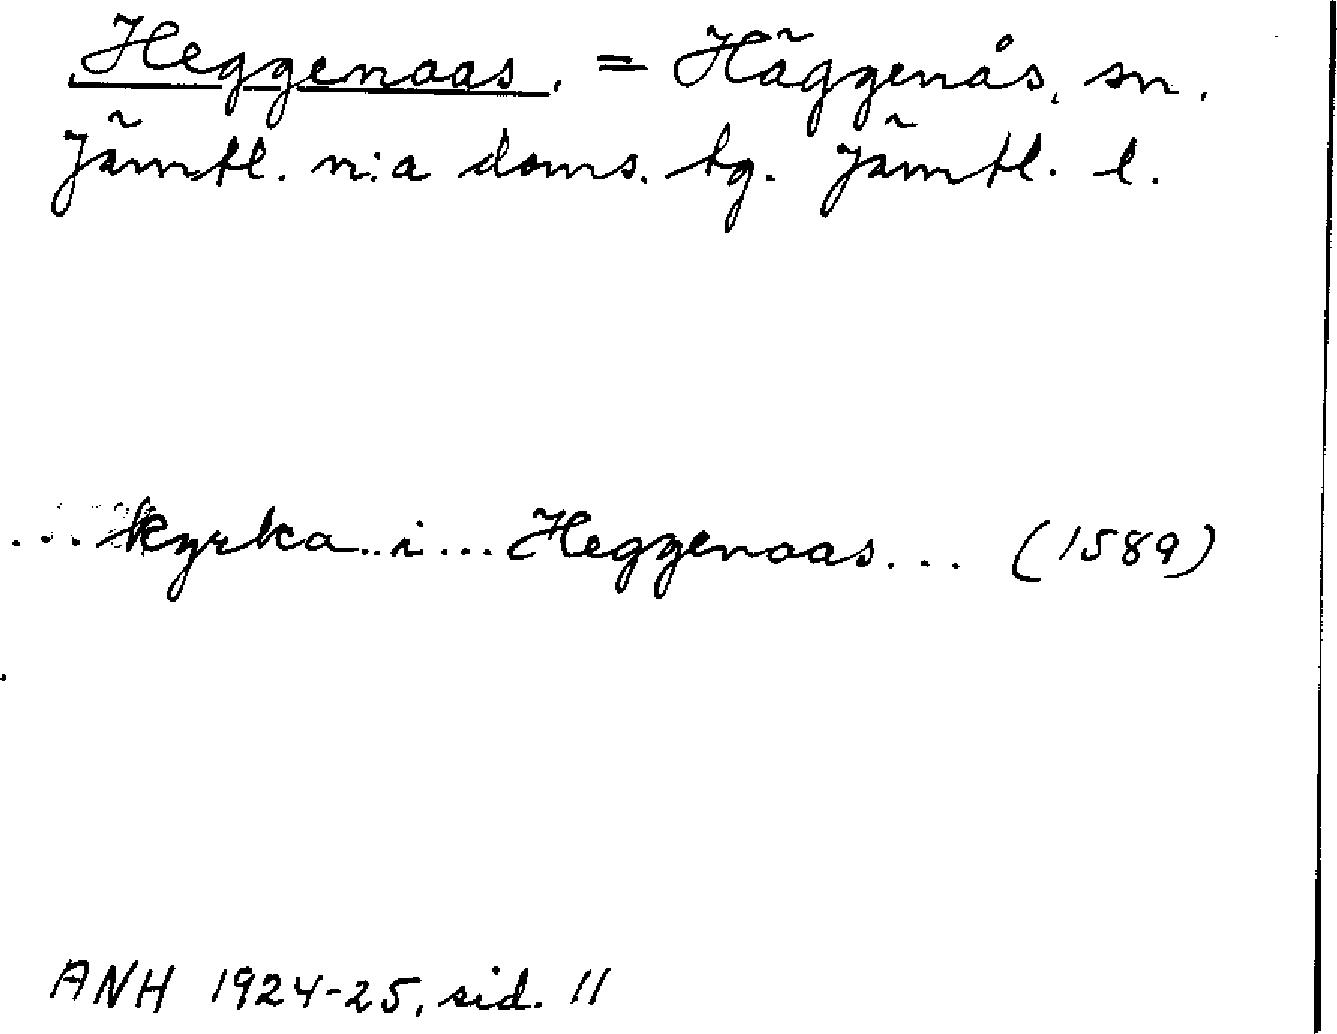 Heggenaas. = Häggenås, sn.
Jämtl. n:a doms. tg. Jämtl. l.
... kyrka.. i... Heggenaas... (1589)
ANH 1924-25, sid. 11